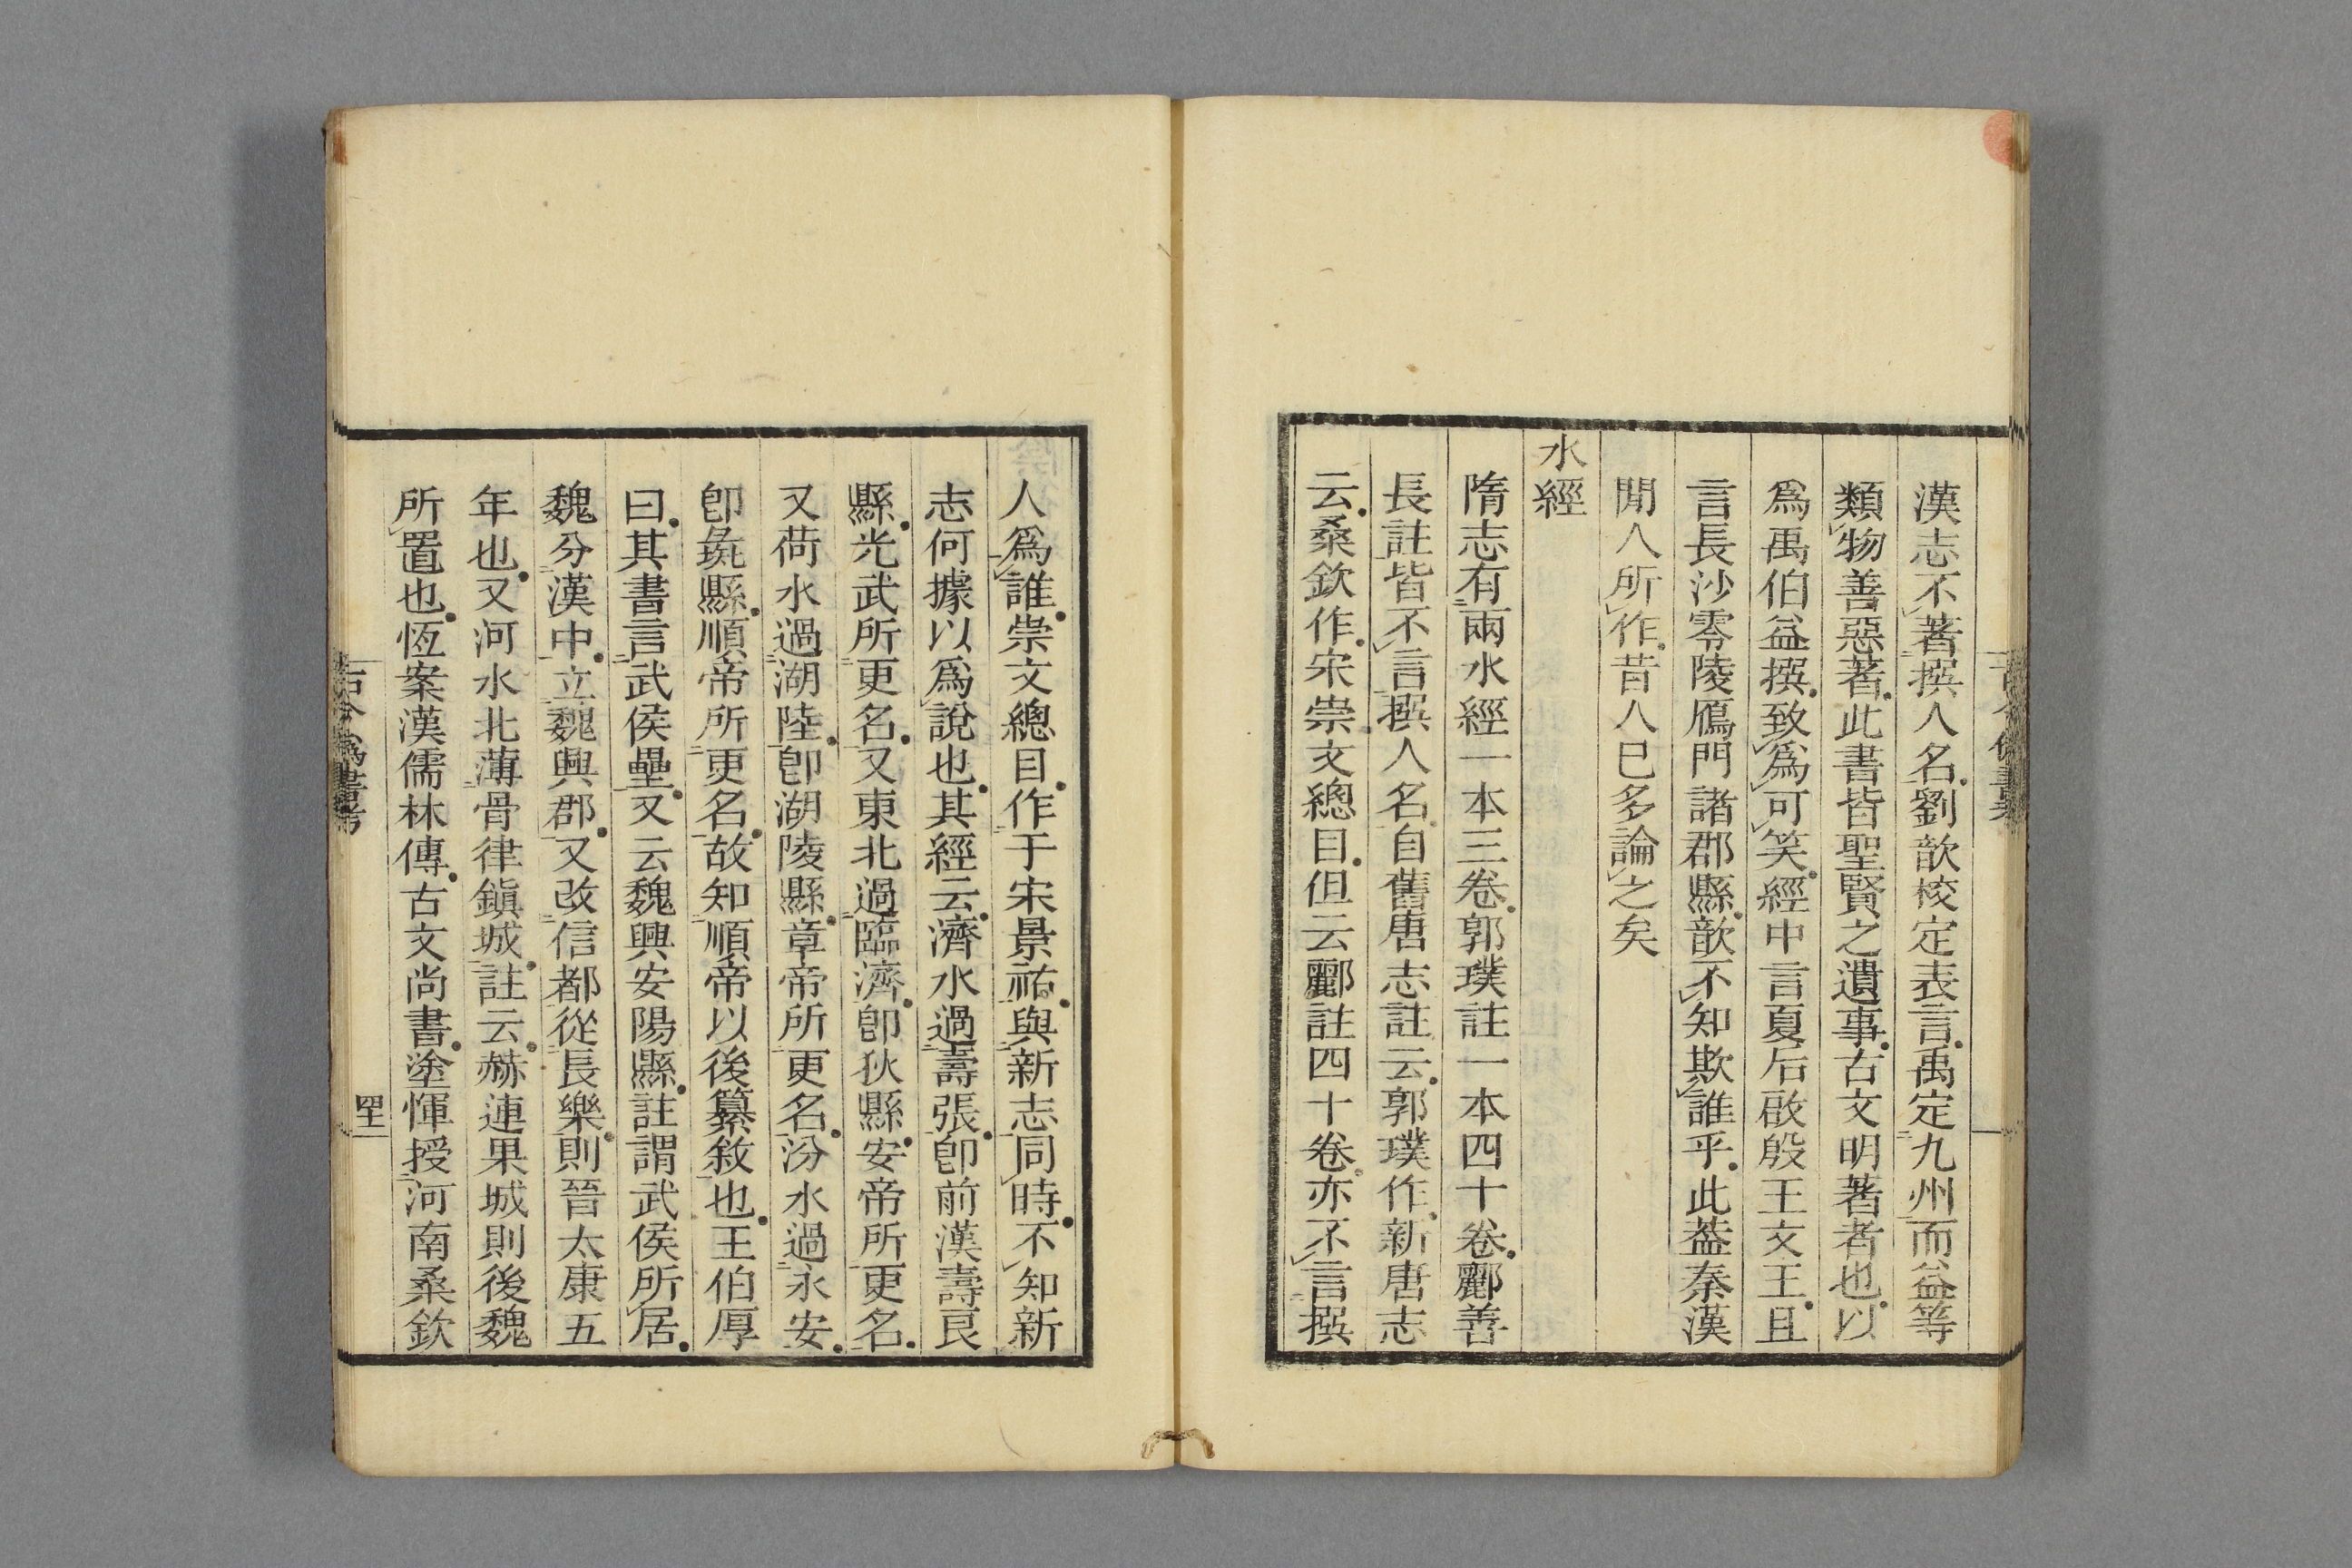 漢志不著撰人名劉歆校定表言禹定九州而益等
類物善惡著此書皆聖賢之遺事古文明著者也以
爲禹伯益撰致爲可笑經中言夏后啟殷王文王且
言長沙零陵鴈門諸郡縣歆不知欺誰乎此葢秦漢
閒人所作昔人已多論之矣
水經
隋志有兩水經一本三卷郭璞註一本四十卷酈善
長註皆不言撰人名自舊唐志註云郭璞作新唐志
云桑欽作宋崇文總目但云酈註四十卷亦不言撰
人爲誰崇文總目作于宋景祐與新志同時不知新
志何據以爲說也其經云濟水過壽張卽前漢壽良
縣光武所更名又東北過臨濟卽狄縣安帝所更名
又荷水過湖陸卽湖陵縣章帝所更名汾水過永安
卽彘縣順帝所更名故知順帝以後纂敘也王伯厚
曰其書言武侯壘又云魏興安陽縣註謂武侯所居
魏分漢中立魏興郡又改信都從長樂則晉太康五
年也又河水北薄骨律鎭城註云赫連果城則後魏
所置也恆案漢儒林傳古文尚書塗惲授河南桑欽
古今僞書考